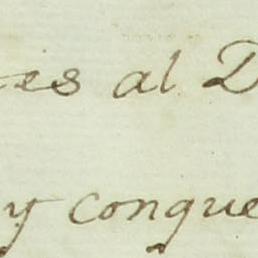 es al D
y conque